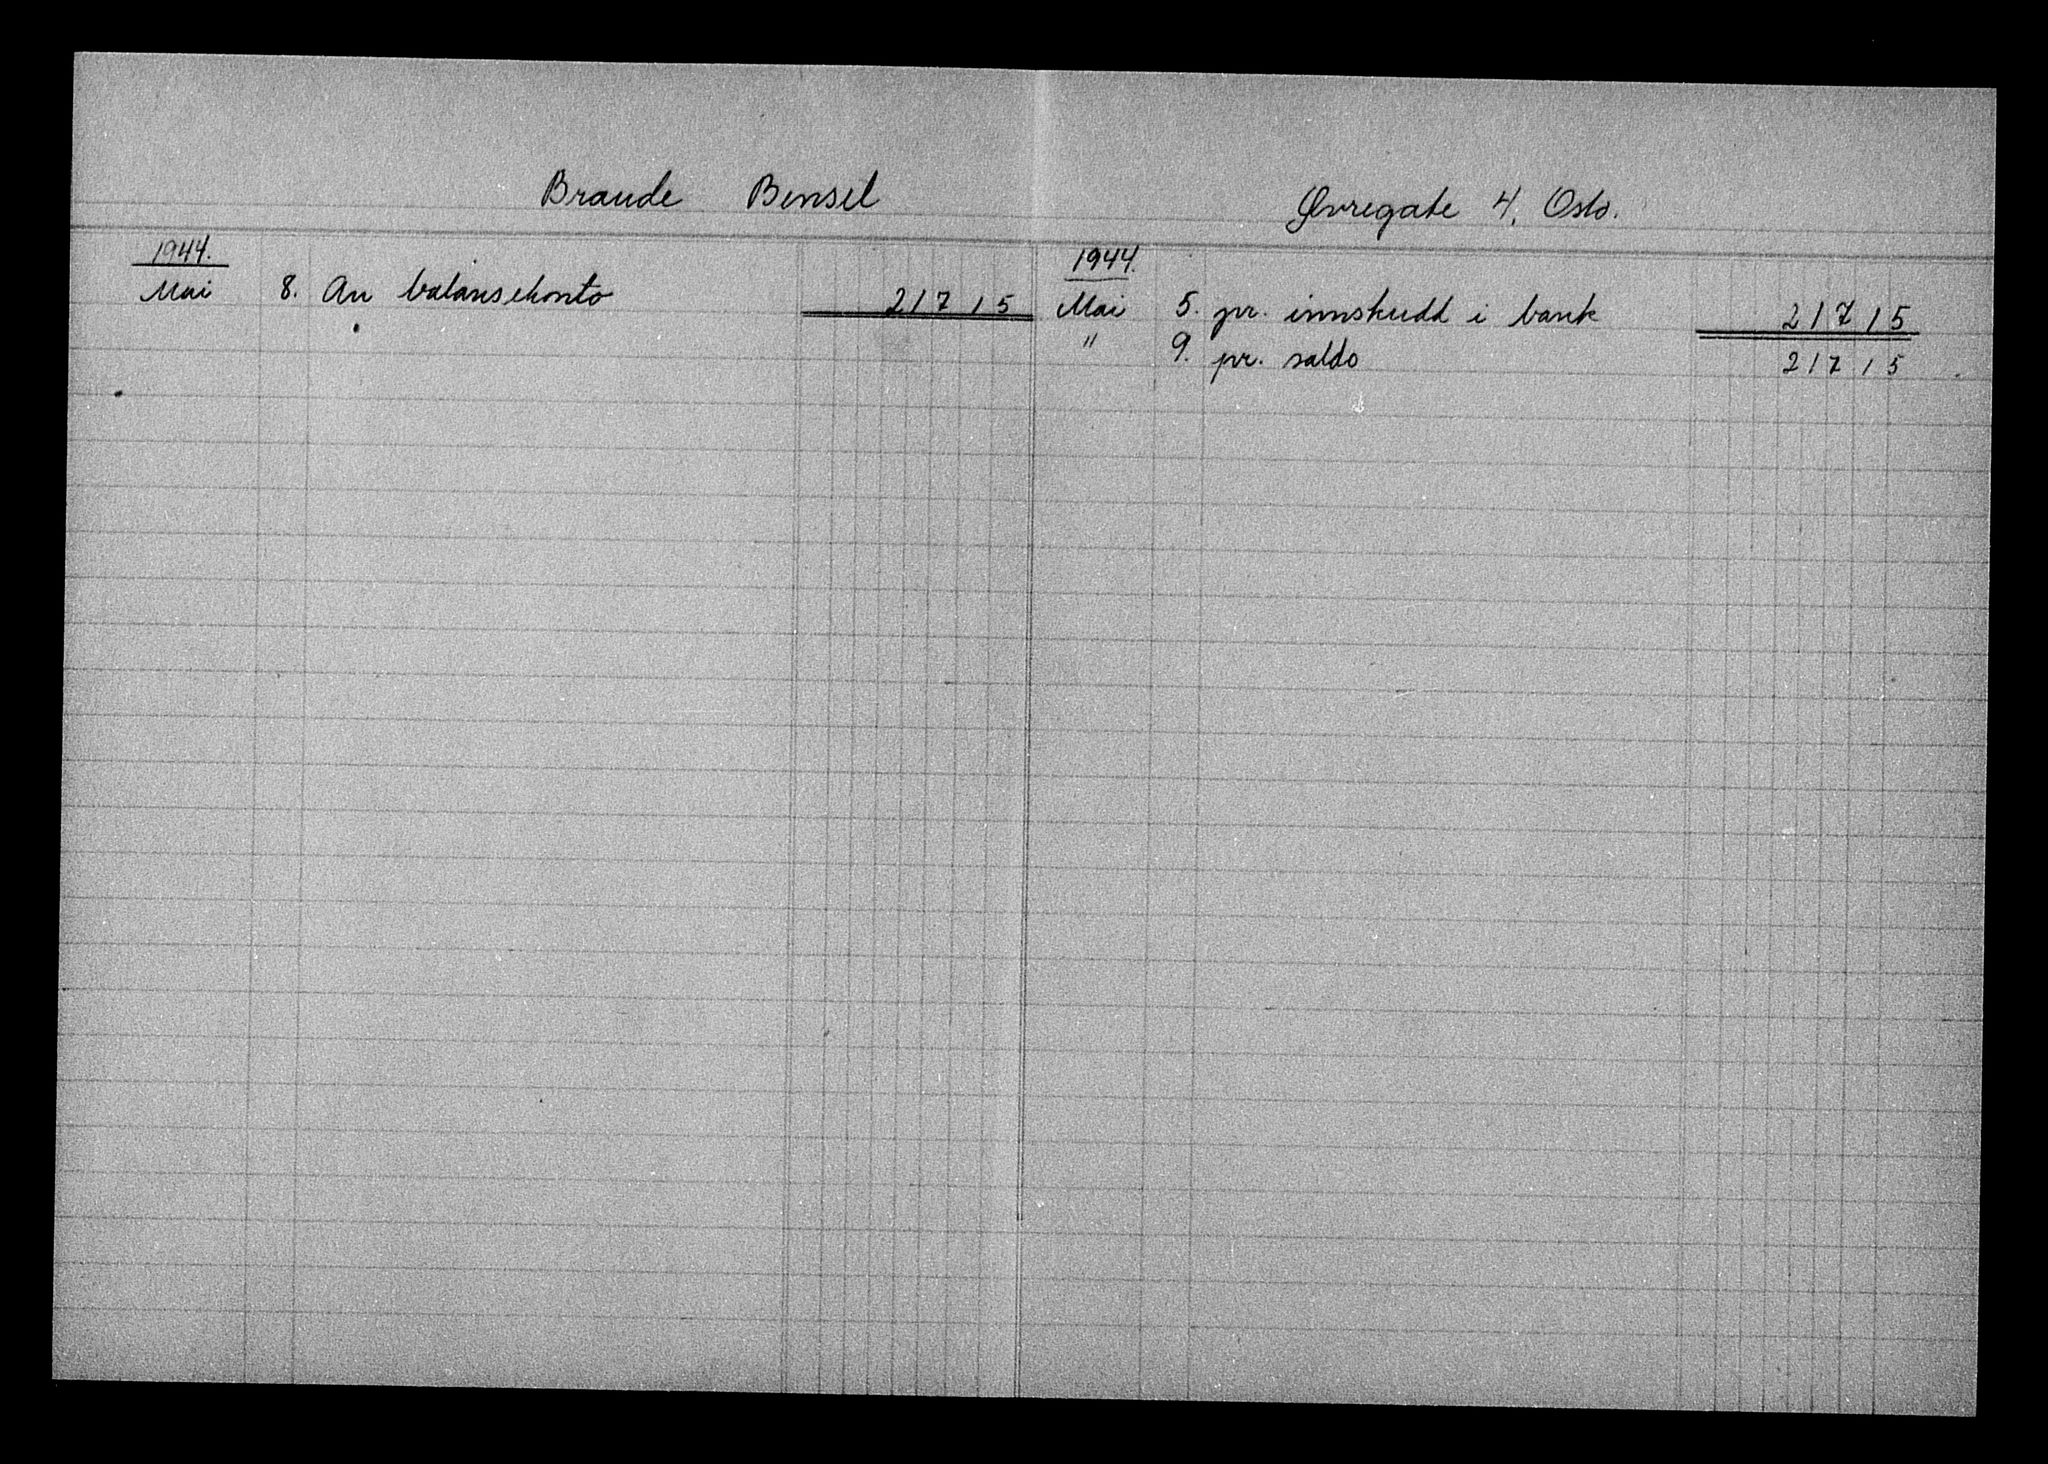 Braude Bensel
Øvregate 4, Oslo.
1944.
Mai 8. An balansekonto 217 15
1944.
Mai 5. pr. innskudd i bank 217 15
" 9. pr. saldo 217 15